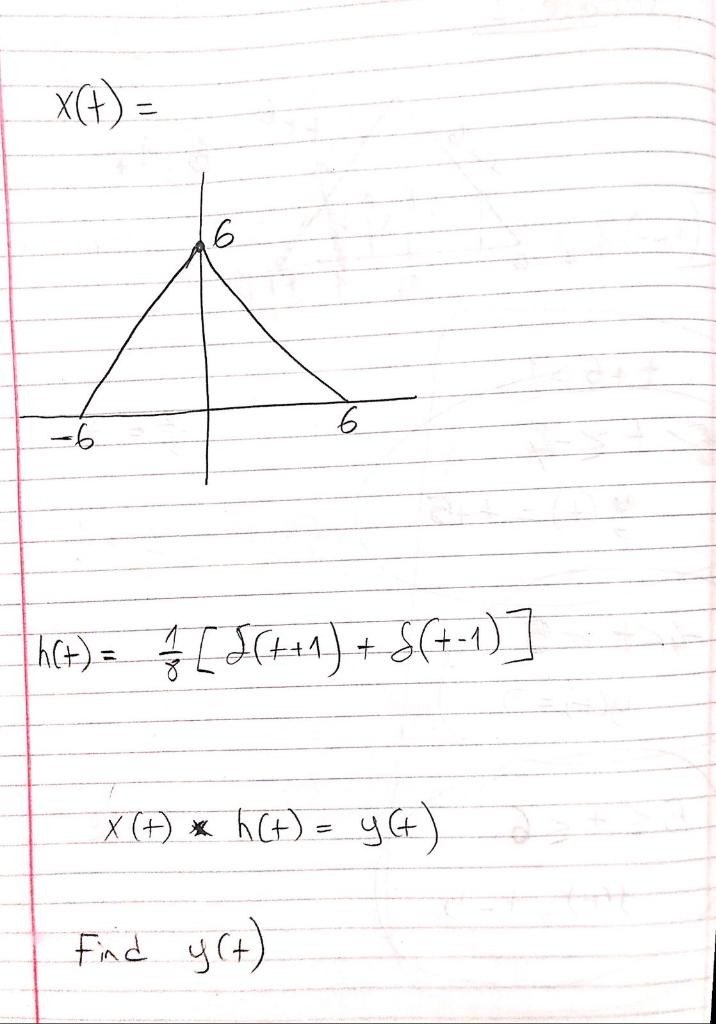 x(t) =
6
-6
6
h(t) = 1/8 [ δ(t+1) + δ(t-1) ]
x(t) * h(t) = y(t)
Find y(t)